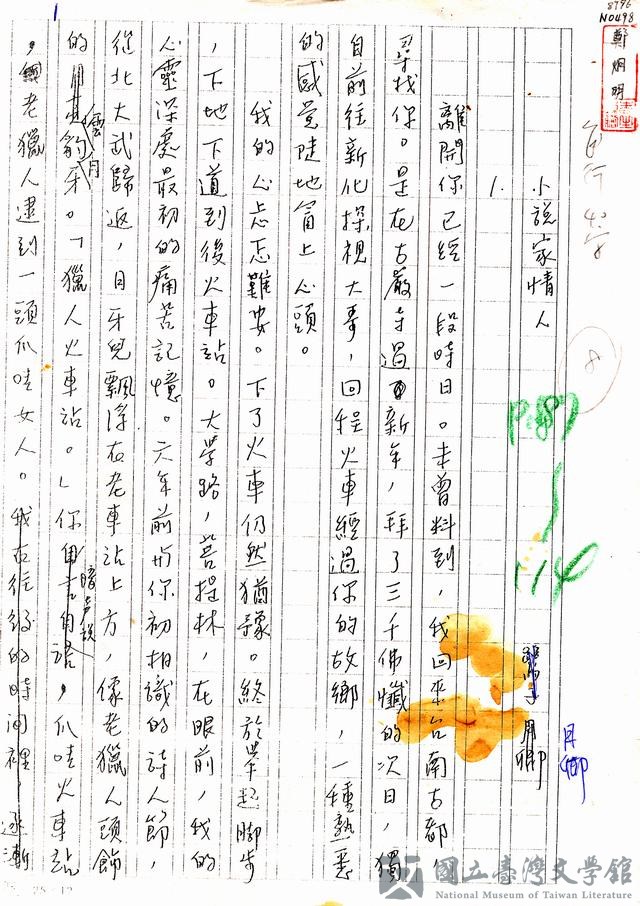 1
8796
NO498
鄭烱明
自行
8
p.87
114
小說家情人
月卿
月卿
1.
離開你已經一段時日。未曾料到,我回來台南古都
尋找你。是在古嚴寺過新年,拜了三千佛懺的次日,獨
自前往新化探視大哥,回程火車經過你的故鄉,一種熟悉
的感覺陡地冒上心頭。
我的心忐忑難安。下了火車仍然猶豫。終於舉起腳步
,下地下道到後火車站。大學路,菩提林,在眼前,我的
心靈深處最初的痛苦記憶。六年前與你初相識的詩人節,
從北大武歸返,月牙兒飄浮在老車站上方,像老獵人頭飾
的彎月鈎牙。「獵人火車站。」你暗声說,爪哇火車站
,老獵人逮到一頭爪哇女人。我在往後的時间裡,逐漸
國立臺灣文學館
National Museum of Taiwan Literature